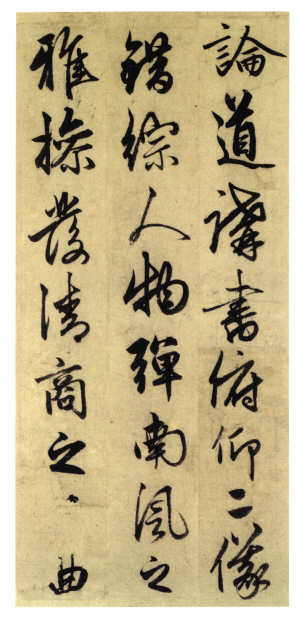 論道講書俯仰二儀
錯綜人物彈南風之
雅操發清商之、曲